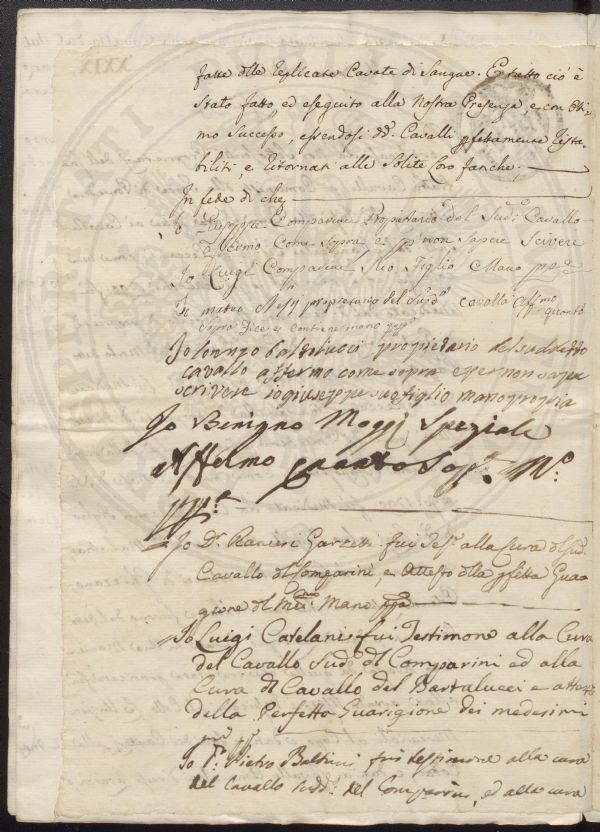 fatte dlle replicate Cavate di Sangue. E tutto ciò è
stato fatto, ed eseguito alla Nostra Presenza e con Otti-
mo Successo, essendosi dd. Cavalli pfettamente rista
biliti e ritornati alle Solite Loro fatiche.
In fede di che
Io Comparini Proprietario del Sud.o Cavallo
affermo Come Sopra, e p non Sapere Scivere
Io Luigi Comparini Suo Figlio Mano ppa
Io mateo proprietario del Sud.o cavallo affmo quanto
sopra dice e contiene mano ppa
Io Lorenzo Baldolucci proprietario del sudetto
cavallo affermo come sopra e per non sapere
scrivere Io giuseppe suo figlio mano propria
Io Benigno Moggi Speziale
Affermo quanto Sop.a M.o
pp.a
Io D.r Ranieri Garzetti fui Tes.e alla Cura dl Sud.o
Cavallo dl Comparini e Attesto dlla pfetta Gua
gione dl Med.mo Mano ppa
Io Luigi Catelani fui Testimone alla Cura
del Cavallo Sud.o dl Comparini ed alla
Cura dl Cavallo del Bartalucci e attesto
della Perfetta Guarigione dei medesimi
Io P. Pietro Baldini fui testimone alla cura
del Cavallo Sud.o del Comparini, ed alla cura